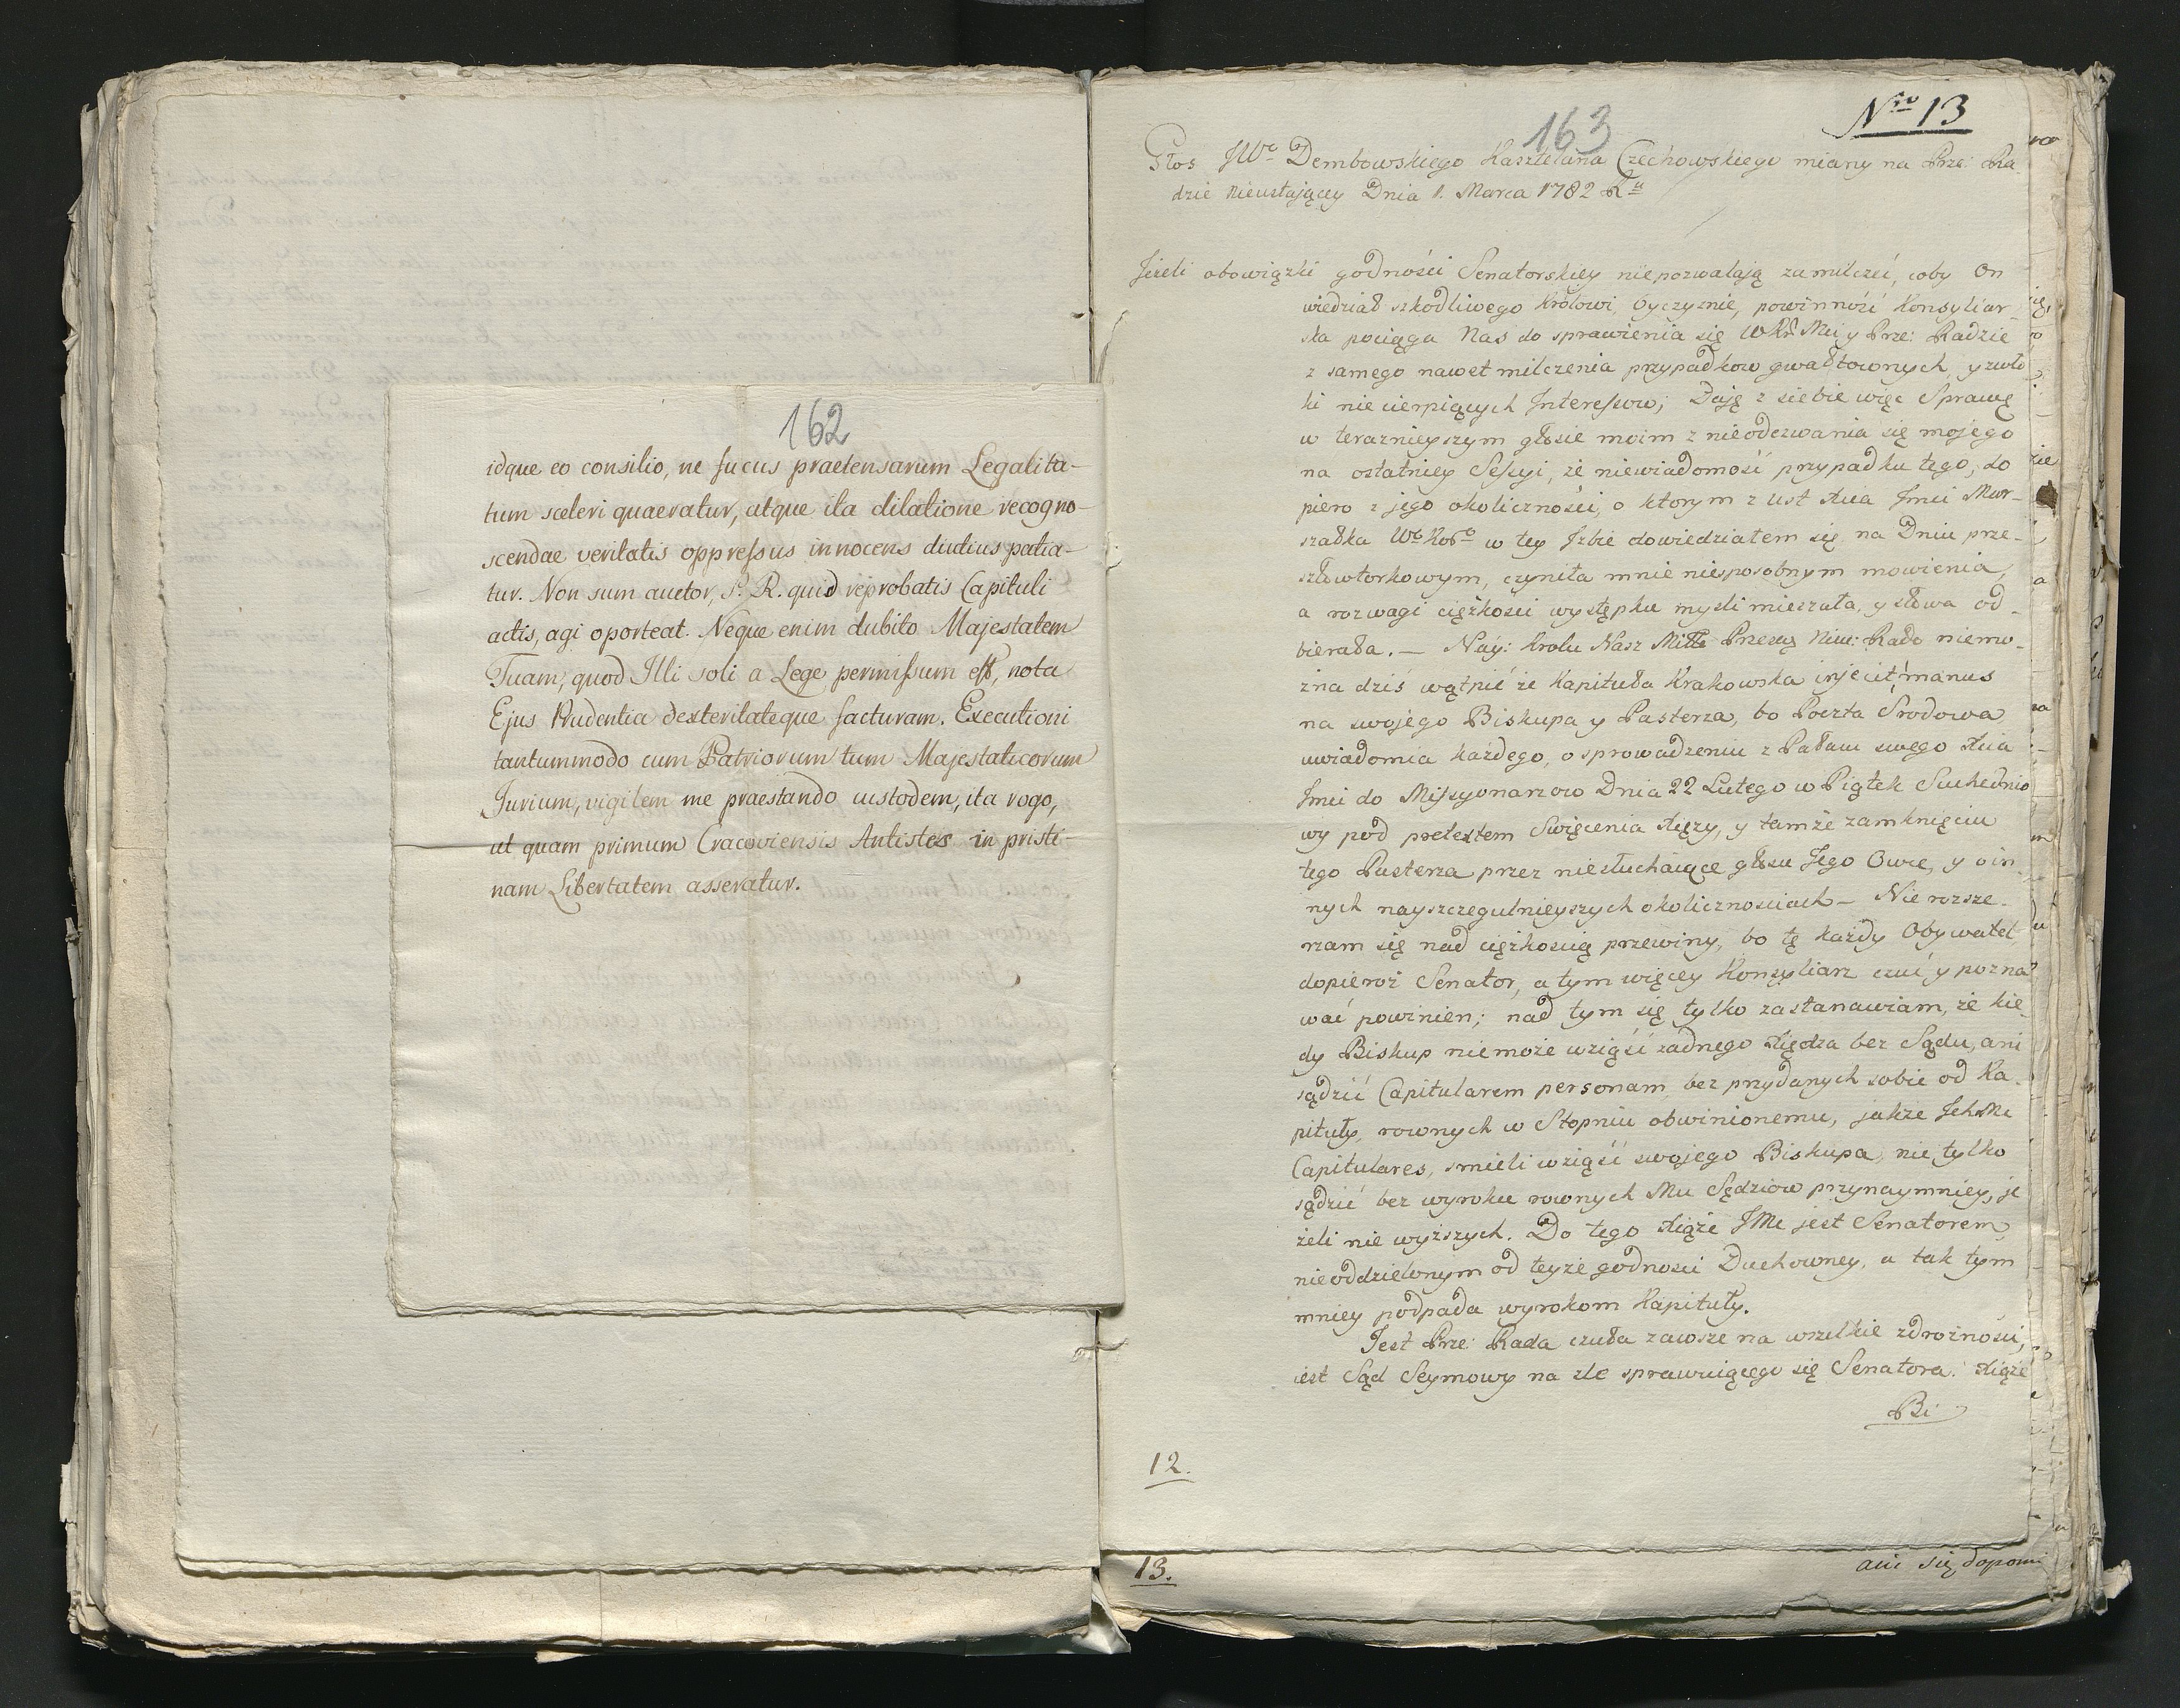 162
idque eo consilio, ne fucus praetensarum Legalita-
tum sceleri quaeratur, atque ita dilatione recogno-
scendae veritatis oppressus innocens diutius patia-
tur. Non sum auctor, S. R. quid reprobatis Capituli
actis, agi oporteat. Neque enim dubito Majestatem
Tuam, quod Illi soli a Lege permissum est, nota
Ejus Prudentia dexteritateque facturam. Executioni
tantummodo cum Patriorum tum Majestaticorum
Jurium, vigilem me praestando custodem, ita rogo,
ut quam primum Cracoviensis Antistes in pristi-
nam Libertatem asseratur.
163
Nro 13
Głos JWo Dembowskiego Kasztelana Czechowskiego miany na Prze: Ra-
dzie Nieustaiącey Dnia 1. Marca 1782 Ru
Jeżeli obowiązki godności Senatorskiey niepozwalają zamilczeć, coby On
wiedział szkodliwego Królowi, Oyczyznie, powinność Konsyliar-
ska pociąga Nas do sprawienia się WKr Mci y Prze: Radzie
z samego nawet milczenia przypadkow gwałtownych, y zwło
ki nie cierpiących Interessow; Daję z siebie więc Sprawę
w teraznieyszym głosie moim z nieodezwania się mojego
na ostatniey Sessyi, że niewiadomość przypadku tego, do
piero z jego okoliczności, o ktorym z ust Xcia Jmci Mar-
szałka Wo Kogo w tey Izbie dowiedziałem się na Dniu prze-
szłowtorkowym, czyniła mnie niesposobnym mowienia,
a rozwagi ciężkości występku mysli mieszała, y słowa od-
bierała. — Nay: Krolu Nasz Miłł Przeza Nieu: Rado niemo-
żna dzis wątpić że Kapituła Krakowska injecit manus
na swojego Biskupa y Pasterza, bo Poczta Srodowa
uwiadomia każdego, o sprowadzeniu z Pałacu swego Xcia
Jmci do Missyonarzow Dnia 22 Lutego w Piątek Suchednio
wy pod pretextem Swięcenia Xięży, y tamże zamknięciu
tego Pasterza przez niesłuchaiące głosu Jego Owce, y o in-
nych nayszczegulnieyszych okolicznosciach — Nie rozsze-
rzam się nad ciężkoscią przewiny, bo tę każdy Obywatel
dopieroż Senator, a tym więcey Konsyliarz czuć y pozna
wać powinien; nad tym się tylko zastanawiam, że kie-
dy Biskup niemoże wziąść żadnego Xiędza bez Sądu, ani
sądzić Capitularem personam bez przydanych sobie od Ka-
pituły, rownych w Stopniu obwinionemu, jakże Ich Mc
Capitulares, smieli wziąść swojego Biskupa, nie tylko
sądzić bez wyroku rownych Mu Sędziow przynaymniey, je
żeli nie wyższych. Do tego Xiąże JMc jest Senatorem
nieoddzielonym od teyże godnosci Duchowney, a tak tym
mniey podpada wyrokom Kapituły.
Jest Prze: Rada czuła zawsze na wszelkie zdrożności,
jest Sąd Seymowy na zle sprawuiącego się Senatora. Xiąże
Bi
12.
13.
ani się dopomi